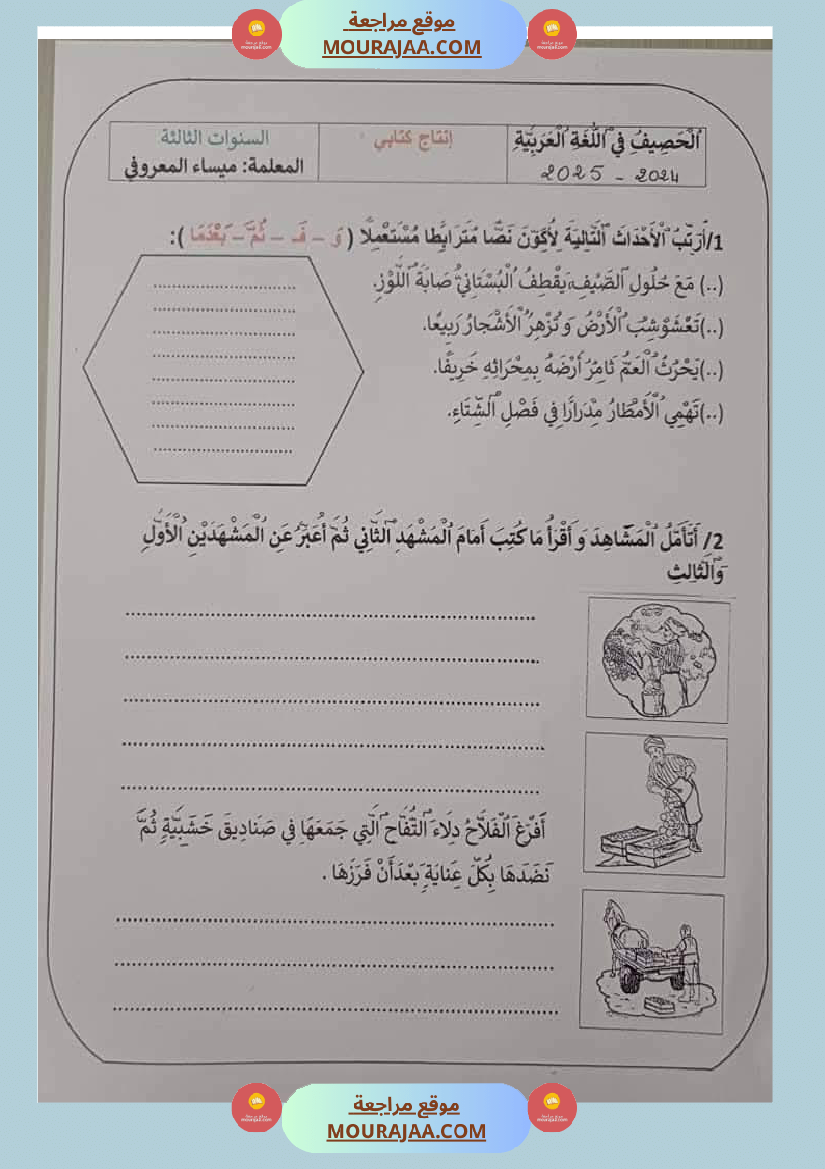 موقع مراجعة
MOURAJAA.COM
الْحَصِيفُ فِي اللُّغَةِ الْعَرَبِيَّةِ
2024 - 2025
إنتاج كتابي
السنوات الثالثة
المعلمة: ميساء المعروفي
1/أُرَتِّبُ الْأَحْدَاثَ التَّالِيَةَ لِأُكَوِّنَ نَصًّا مُتَرَابِطًا مُسْتَعْمِلًا ( وَ – فَـ – ثُمَّ – بَعْدَمَا ):
(..) مَعَ حُلُولِ الصَّيْفِ،يَقْطِفُ الْبُسْتَانِيُّ صَابَةَ اللَّوْزِ.
(..)تَعْشَوْشِبُ الْأَرْضُ وَ تُزْهِرُ الْأَشْجَارُ رَبِيعًا.
(..)يَحْرُثُ الْعَمُّ ثَامِرُ أَرْضَهُ بِمِحْرَاثِهِ خَرِيفًا.
(..)تَهْمِي الْأَمْطَارُ مِدْرَارًا فِي فَصْلِ الشِّتَاءِ.
2/ أَتَأَمَّلُ الْمَشَاهِدَ وَ أَقْرَأُ مَا كُتِبَ أَمَامَ الْمَشْهَدِ الثَّانِي ثُمَّ أُعَبِّرُ عَنِ الْمَشْهَدَيْنِ الْأَوَّلِ
وَالثَّالِثِ
أَفْرَغَ الْفَلَّاحُ دِلَاءَ التُّفَّاحِ الَّتِي جَمَعَهَا فِي صَنَادِيقَ خَشَبِيَّةٍ ثُمَّ
نَضَّدَهَا بِكُلِّ عِنَايَةٍ بَعْدَ أَنْ فَرَزَهَا .
موقع مراجعة
MOURAJAA.COM